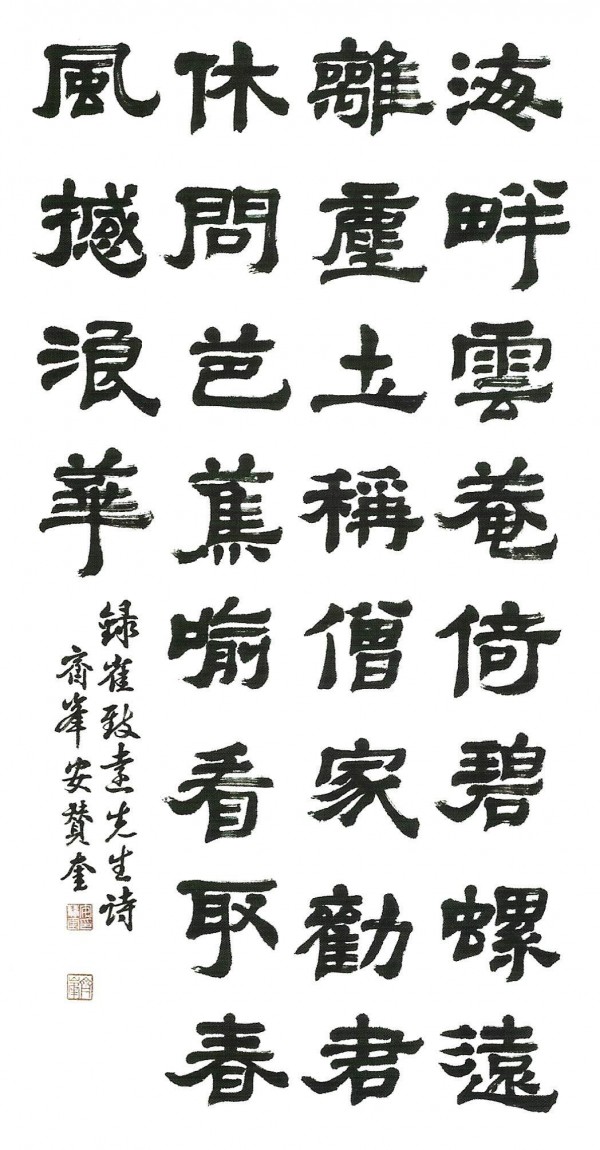 海畔雲菴倚碧螺遠
離塵土稱僧家勸君
休問芭蕉喻看取春
風撼浪華
錄崔致遠先生詩
齊峯安贊奎